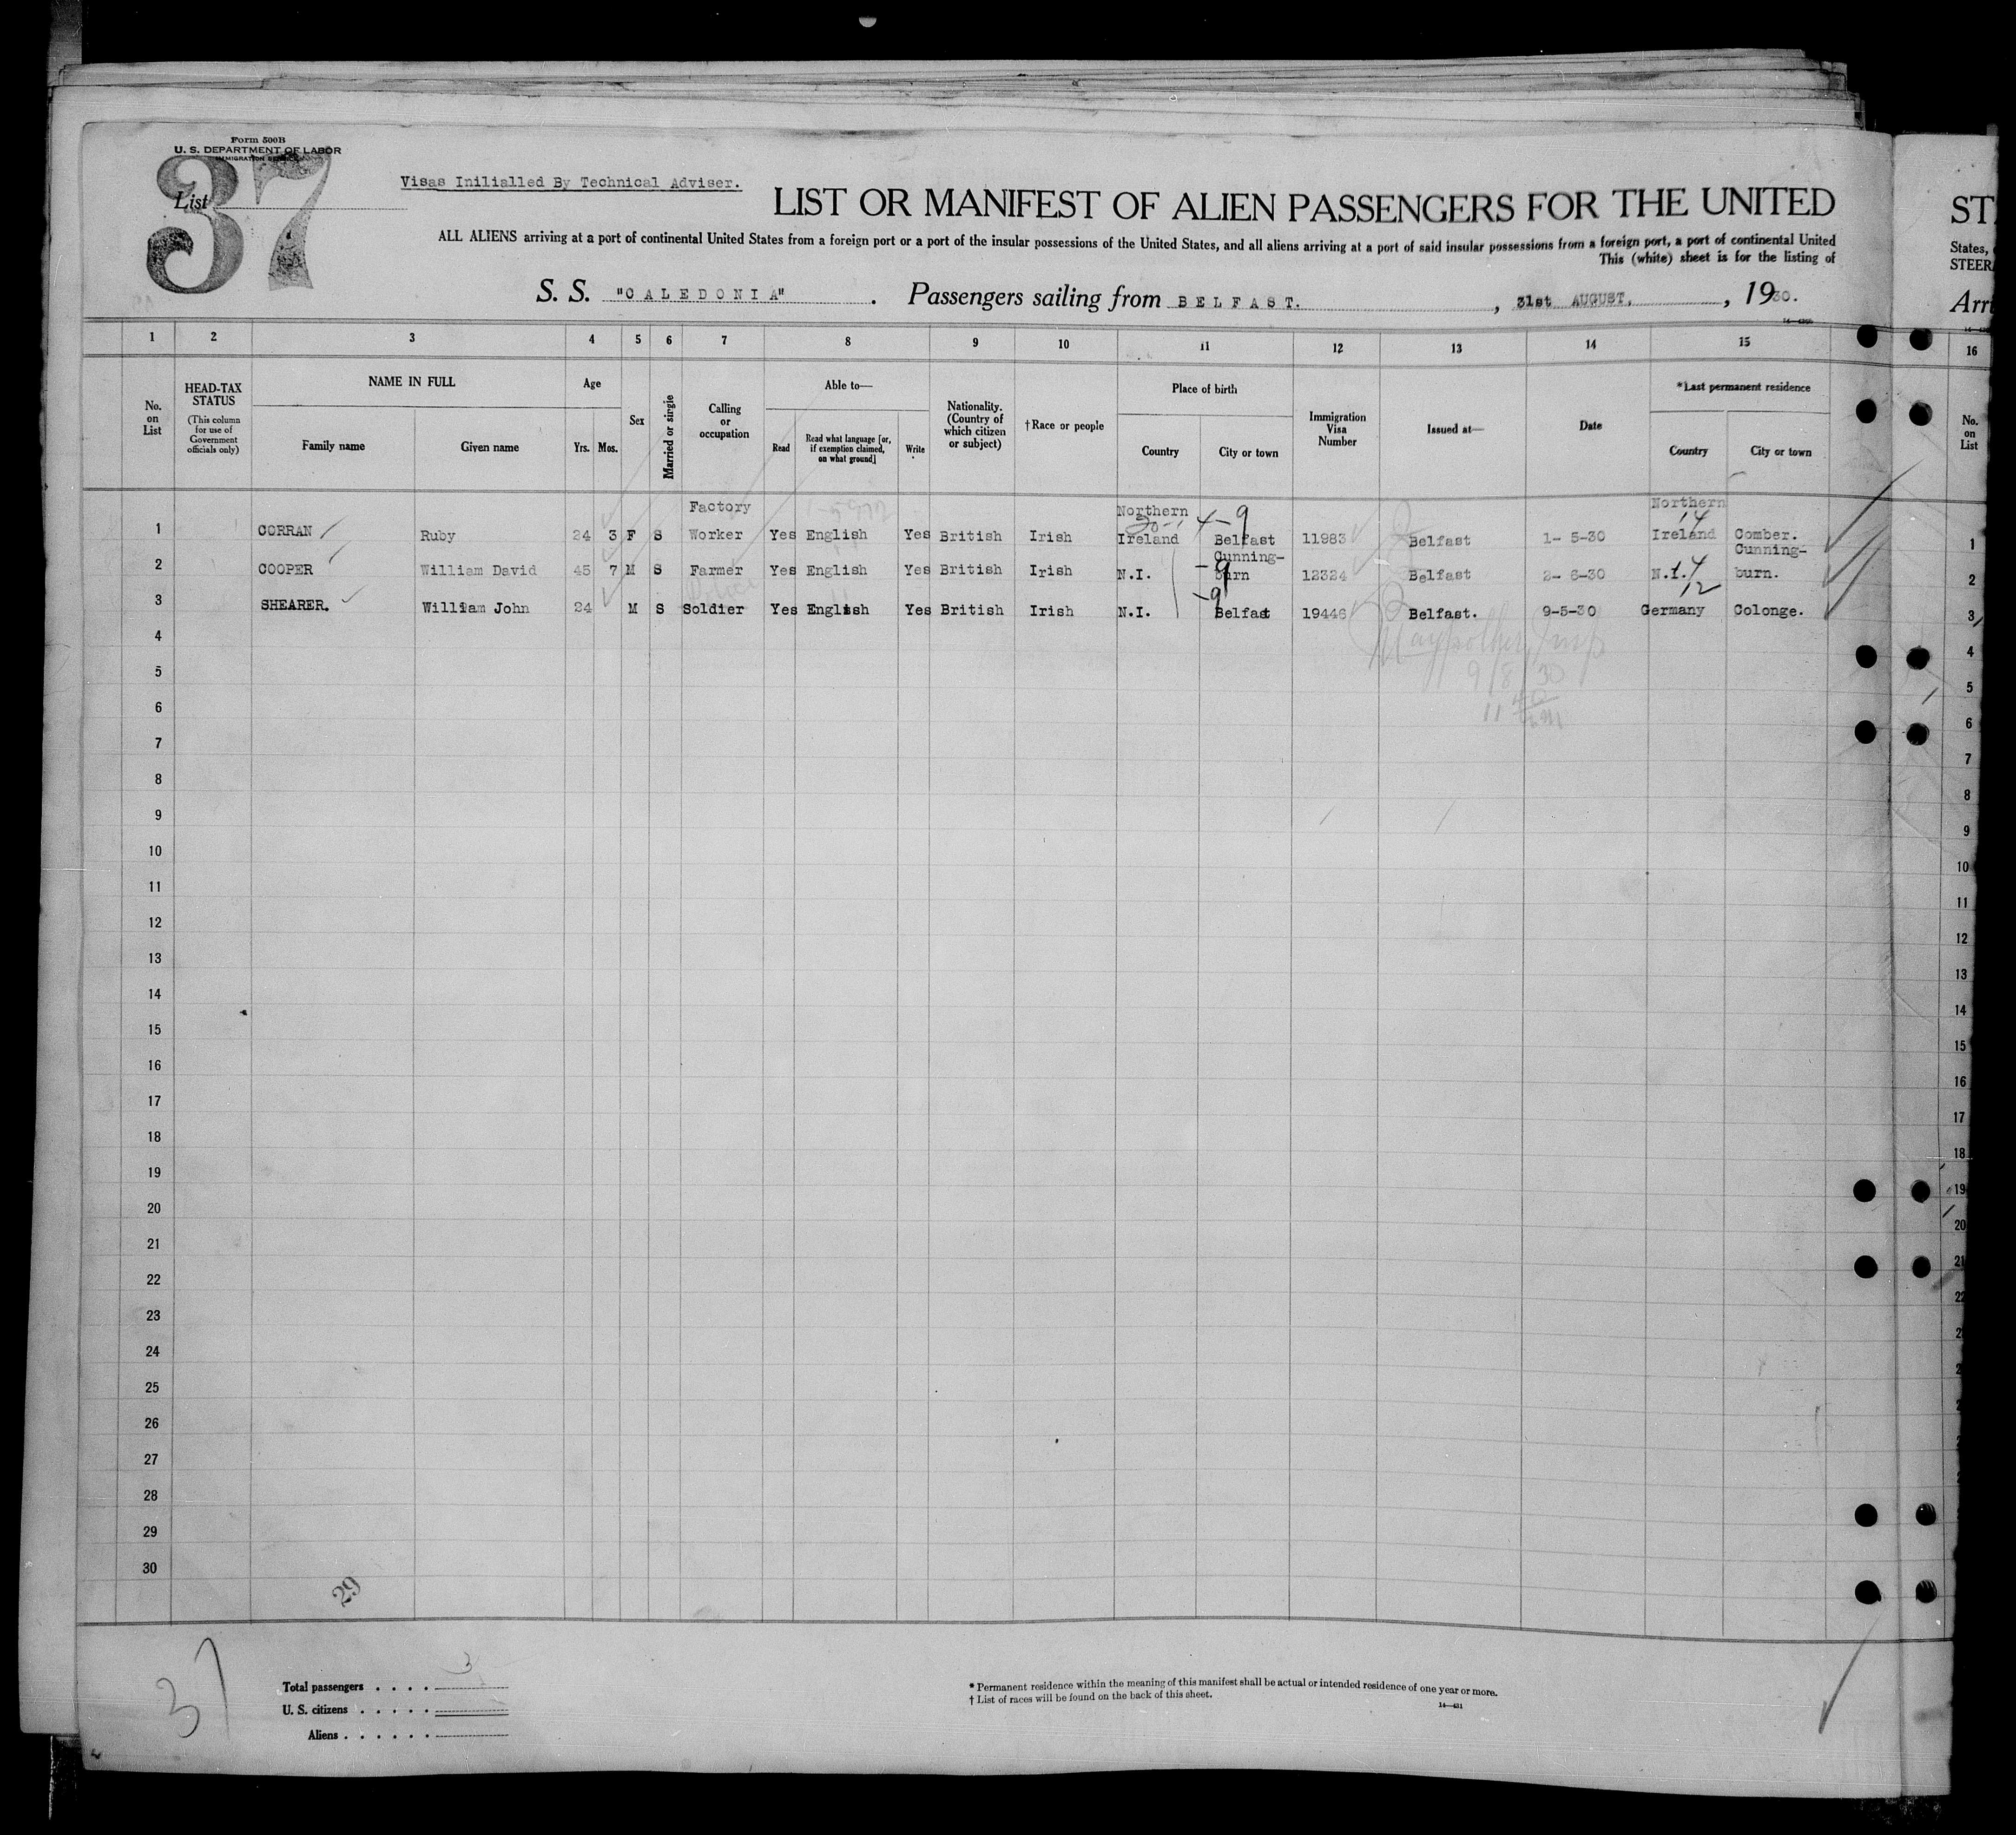 Form 500B
U. S. DEPARTMENT OF LABOR
IMMIGRATION SERVICE
List 37
Visas Inilialled By Technical Adviser.
LIST OR MANIFEST OF ALIEN PASSENGERS FOR THE UNITED
ALL ALIENS arriving at a port of continental United States from a foreign port or a port of the insular possessions of the United States, and all aliens arriving at a port of said insular possessions from a foreign port, a port of continental United
This (white) sheet is for the listing of
S. S. "CALEDONIA" . Passengers sailing from BELFAST. , 31st AUGUST. , 1930.
ST
States,
STEER
Arri
1 2 3 4 5 6 7 8 9 10 11 12 13 14 15 16
No. on List
HEAD-TAX STATUS
(This column for use of Government officials only)
NAME IN FULL
Family name Given name
Age
Yrs. Mos.
Sex
Married or single
Calling or occupation
Able to—
Read
Read what language [or, if exemption claimed, on what ground]
Write
Nationality. (Country of which citizen or subject)
†Race or people
Place of birth
Country City or town
Immigration Visa Number
Issued at—
Date
*Last permanent residence
Country City or town
No. on List
1 CORRAN Ruby 24 3 F S Factory Worker Yes English Yes British Irish Northern Ireland Belfast 11983 Belfast 1- 5-30 Northern Ireland Comber. 1
2 COOPER William David 45 7 M S Farmer Yes English Yes British Irish N.I. Cunning-burn 12324 Belfast 2- 6-30 N.I. Cunning-burn. 2
3 SHEARER. William John 24 M S Soldier Yes English Yes British Irish N.I. Belfast 19446 Belfast. 9-5-30 Germany Colonge. 3
4 4
5 5
6 6
7 7
8 8
9 9
10 10
11 11
12 12
13 13
14 14
15 15
16 16
17 17
18 18
19 19
20 20
21 21
22 22
23
24
25
26
27
28
29
30
29
37
Total passengers . . . . 3
U. S. citizens . . . . .
Aliens . . . . . .
* Permanent residence within the meaning of this manifest shall be actual or intended residence of one year or more.
† List of races will be found on the back of this sheet.